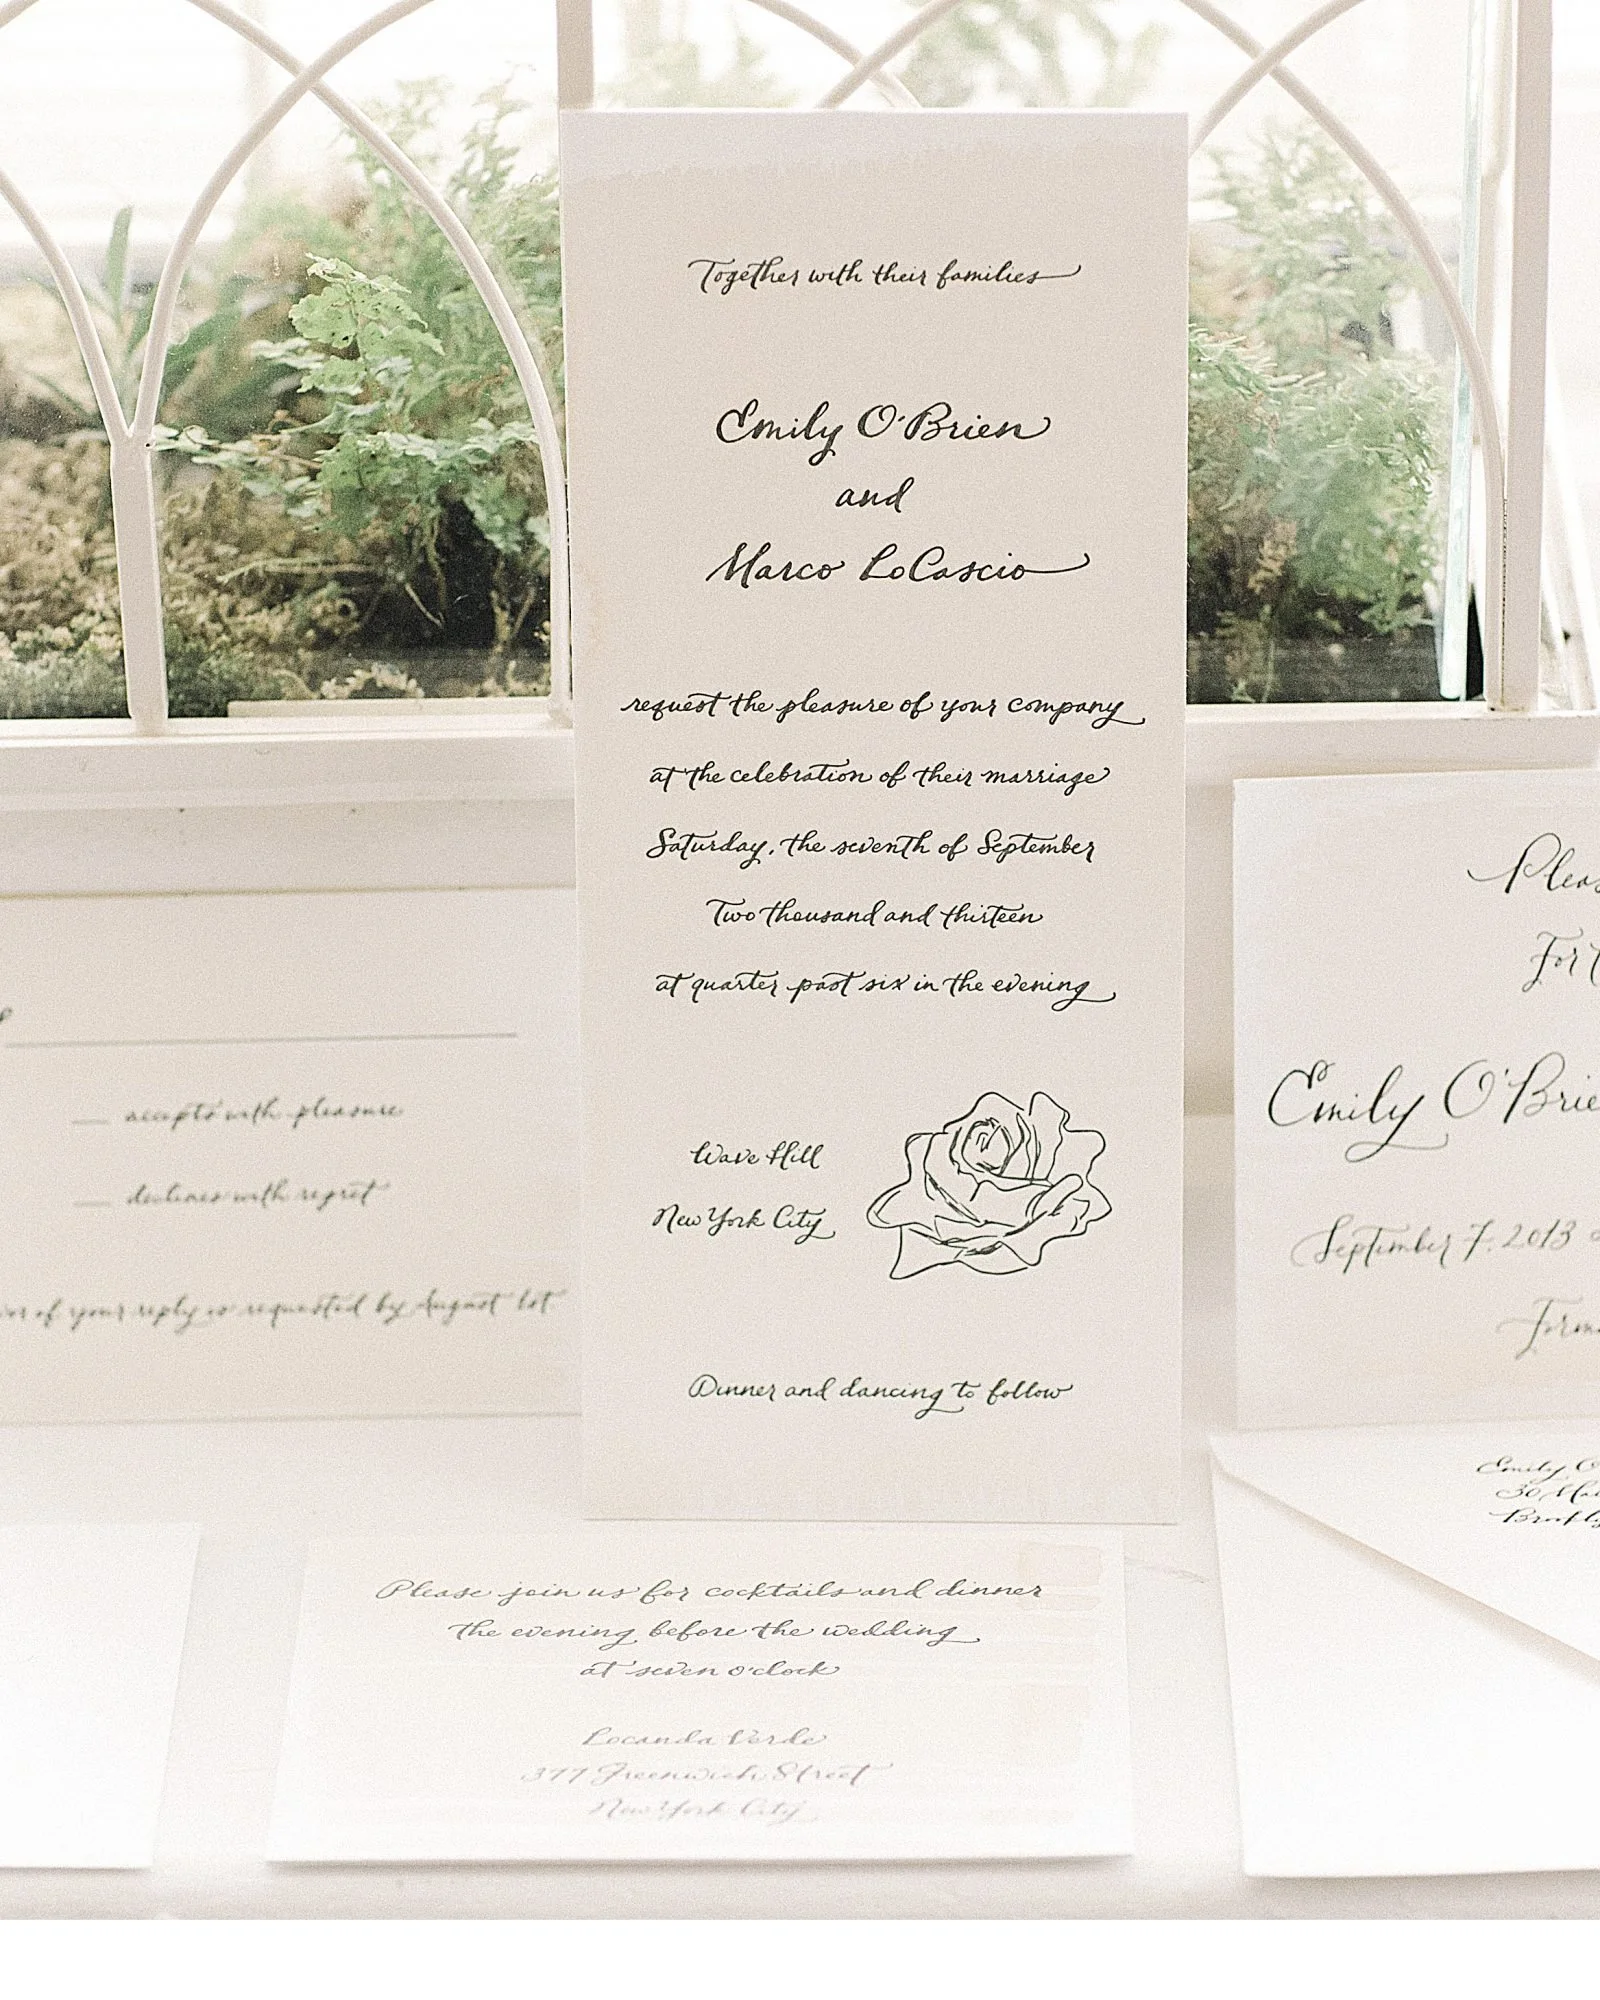 Together with their families
Emily O'Brien
and
Marco LoCascio
request the pleasure of your company
at the celebration of their marriage
Saturday, the seventh of September
Two thousand and thirteen
at quarter past six in the evening
Wave Hill
New York City
Dinner and dancing to follow
accepts with pleasure
declines with regret
of your reply is requested by August 1st
Emily O'Brie
September 7, 2013
Emily
30
Please join us for cocktails and dinner
the evening before the wedding
at seven o'clock
Locanda Verde
377 Greenwich Street
New York City